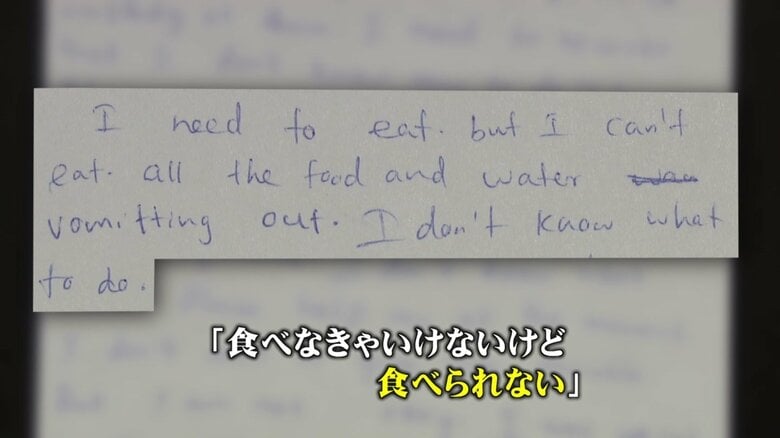 I need to eat. but I can't
eat. all the food and water
vomitting out. I don't know what
to do.
「食べなきゃいけないけど
食べられない」